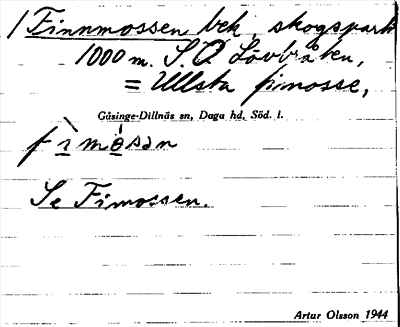 1 Finnmossen bek. skogspark
1000 m. S.O Lövbråten,
= Ullsta fimosse,
Gåsinge-Dillnäs sn, Daga hd, Söd. l.
fì mósan
Se Fimossen.
Artur Olsson 1944